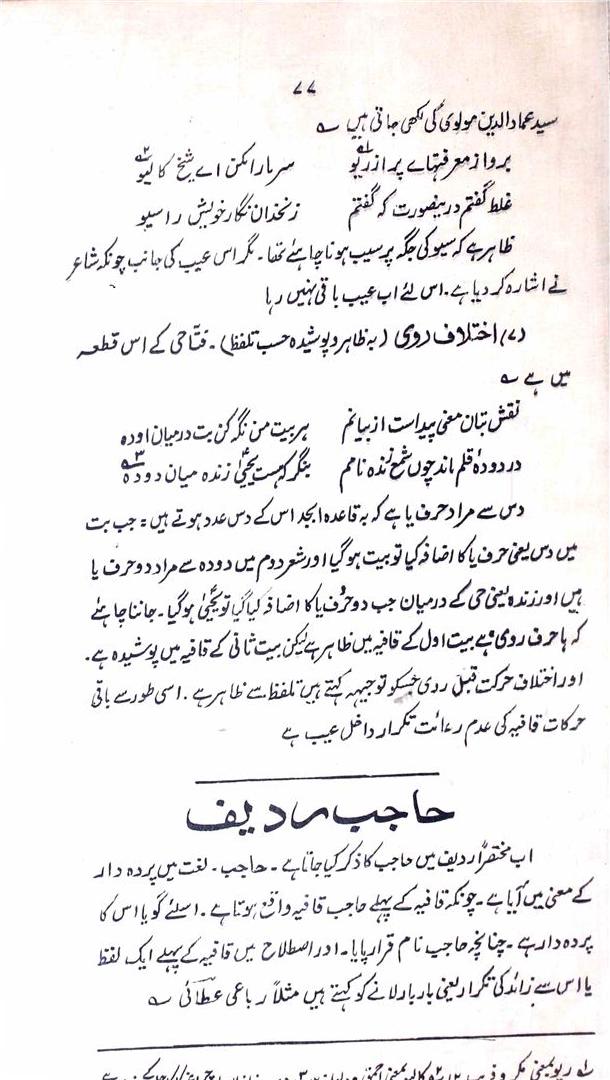 ۷۷
سید عماد الدین مولوی کی لکھی جاتی ہیں ؎
برواز معرفتہاے پر از ریو سر مارا مکن اے شیخ کالیو
غلط گفتم درینصورت کہ گفتم زنخدان نگار خویش را سیو
ظاہر ہے کہ سیو کی جگہ پر سیب ہونا چاہئے تھا۔ مگر اس عیب کی جانب چونکہ شاعر
نے اشارہ کر دیا ہے۔ اس لئے اب عیب باقی نہیں رہا
(۷) اختلاف روی (بہ ظاہر و پوشیدہ حسب تلفظ)۔ فتاحی کے اس قطعہ
میں ہے ؎
نقش بتان معنی پیداست از بیانم ہر بیت من نگہ کن بت درمیان او دہ
در دودۂ قلم ماند چوں شمع زندہ نامم بنگر کہ ہست یحییٰ زندہ میان دودہ
دس سے مراد حرف یا ہے کہ بہ قاعدہ ابجد اس کے دس عدد ہوتے ہیں: جب بت
میں دس یعنی حرف یا کا اضافہ کیا تو بیت ہو گیا اور شعر دوم میں دودہ سے مراد دو حرف یا
ہیں اور زندہ یعنی حی کے درمیان جب دو حرف یا کا اضافہ کیا گیا تو یحییٰ ہو گیا۔ جاننا چاہئے
کہ ہا حرف روی ہے بیت اول کے قافیہ میں ظاہر ہے لیکن بیت ثانی کے قافیہ میں پوشیدہ ہے۔
اور اختلاف حرکت قبل روی جسکو توجیہہ کہتے ہیں تلفظ سے ظاہر ہے۔ اسی طور سے باقی
حرکات قافیہ کی عدم رعائت تکرار داخل عیب ہے
حاجب ردیف
اب مختصراً ردیف میں حاجب کا ذکر کیا جاتا ہے۔ حاجب۔ لغت میں پردہ دار
کے معنی میں آیا ہے۔ چونکہ قافیہ کے پہلے حاجب قافیہ واقع ہوتا ہے۔ اسلئے گویا اس کا
پردہ دار ہے۔ چنانچہ حاجب نام قرار پایا۔ اور اصطلاح میں قافیہ کے پہلے ایک لفظ
یا اس سے زائد کی تکرار یعنی بار بار لانے کو کہتے ہیں مثلاً رباعی عطائی ؎